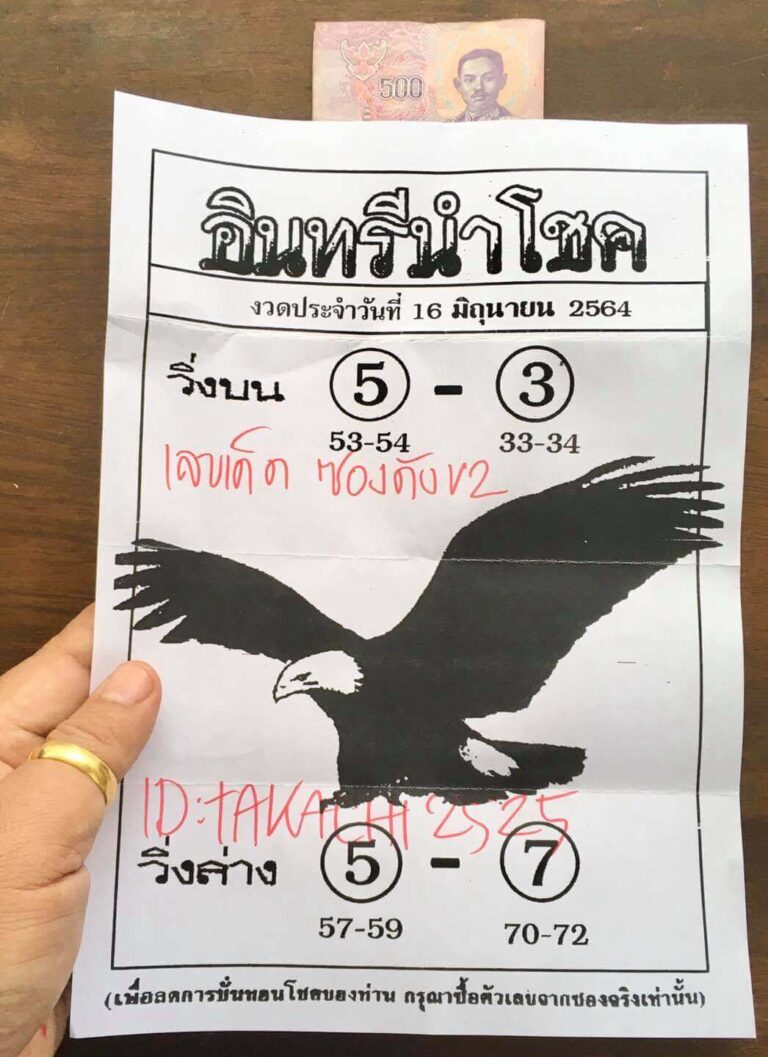 500
อินทรีนำโชค
งวดประจำวันที่ 16 มิถุนายน 2564
วิ่งบน 5 - 3
53-54 33-34
เลขเด็ด ซองดังV2
ID:TAKACHI2525
วิ่งล่าง 5 - 7
57-59 70-72
(เพื่อลดการบั่นทอนโชคของท่าน กรุณาซื้อตัวเลขจากซองจริงเท่านั้น)